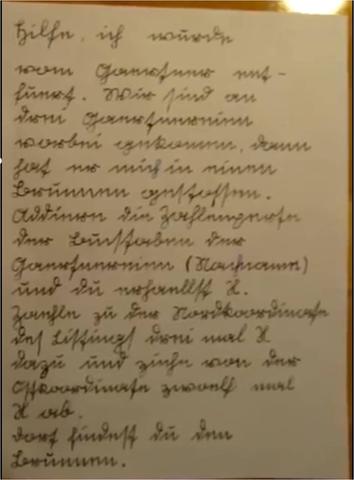 Hilfe, ich wurde
vom Gaertner ent-
fuert. Wir sind an
drei Gaertnereien
vorbei gekomen, dann
hat er mich in einen
Brunnen gestossen.
Addiere die Zahlenwerte
der Buchstaben der
Gaertnereien (Nachname)
und du erhaellst X.
Zaehle zu der Nordkoordinate
des Listings drei mal X
dazu und ziehe von der
Ostkoordinate zwoelf mal
X ab.
Dort findest du den
Brunnen.